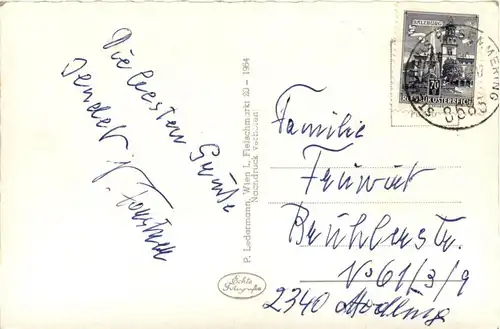 Die besten Grüße
sendet
P. Ledermann, Wien I., Fleischmarkt 20 - 1964
Nachdruck verboten!
Echte
Fotografie
SALZBURG
70
REPUBLIK ÖSTERREICH
Familie
Bruhlerstr.
No 61/3/9
2340 Mödling